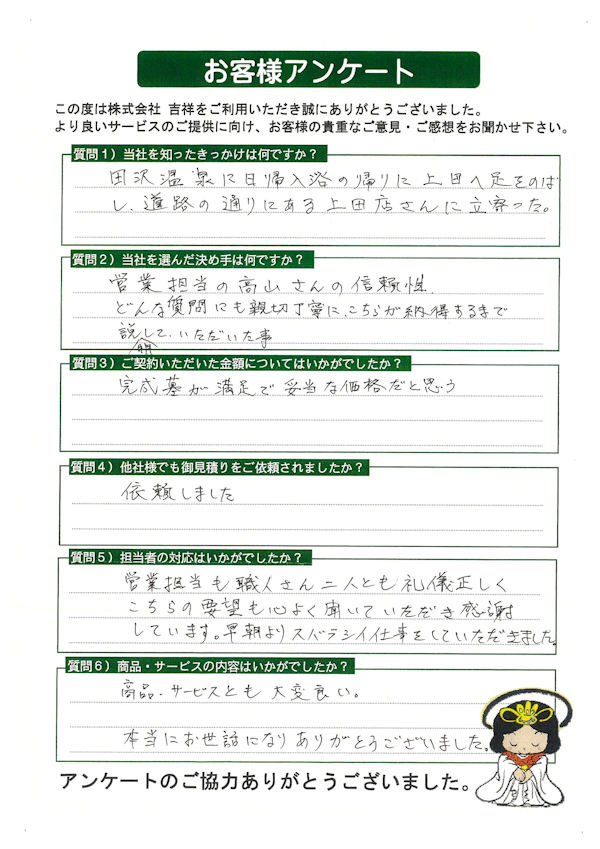 お客様アンケート
この度は株式会社 吉祥をご利用いただき誠にありがとうございました。
より良いサービスのご提供に向け、お客様の貴重なご意見・ご感想をお聞かせ下さい。
質問1）当社を知ったきっかけは何ですか？
田沢温泉に日帰入浴の帰りに上田へ足をのば
し、道路の通りにある上田店さんに立寄った。
質問2）当社を選んだ決め手は何ですか？
営業担当の高山さんの信頼性、
どんな質問にも親切丁寧に、こちらが納得するまで
説明して、いただいた事
質問3）ご契約いただいた金額についてはいかがでしたか？
完成墓が満足で妥当な価格だと思う
質問4）他社様でも御見積りをご依頼されましたか？
依頼しました
質問5）担当者の対応はいかがでしたか？
営業担当も職人さん二人とも礼儀正しく
こちらの要望も心よく聞いていただき感謝
しています。早朝よりスバラシイ仕事をしていただきました。
質問6）商品・サービスの内容はいかがでしたか？
商品、サービスとも大変良い。
本当にお世話になりありがとうございました。
アンケートのご協力ありがとうございました。